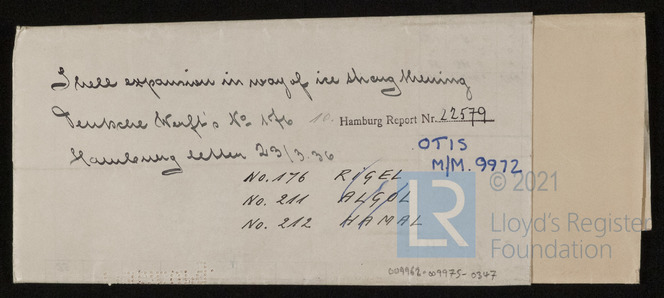 Shell expansion in way of ice strengthening
Deutsche Werft's No 176 10. Hamburg Report Nr. 22579
Hamburg letter 23/3.36
OTIS
M/M. 9972
No. 176 RIGEL
No. 211 ALGOL
No. 212 HAMAL
© 2021
LR
Lloyd's Register
Foundation
009962-009975-0347